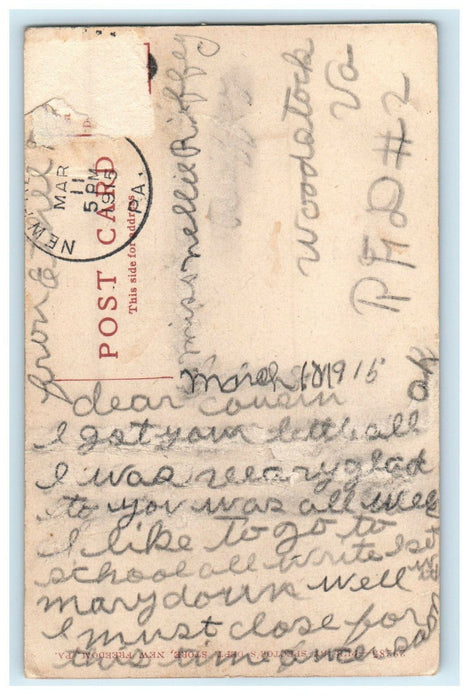 POST CARD
This side for address.
NEW
MAR
11
5 PM
1915
PA.
miss nellie Riffey
Woodstock
Va
RFD #2
March 10 1915
dear cousin
I got your letter all
OK
I was veary glad
to you was all well
I like to go to
school all write I set
mary down well
I must close for
this time
PERRY SPECTOR'S DEPT. STORE, NEW FREEDOM, PA.